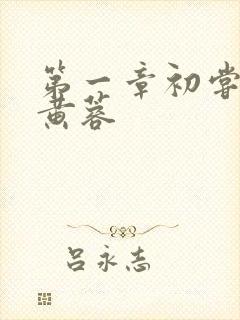 第一章初尝
黄蓉
吕永志